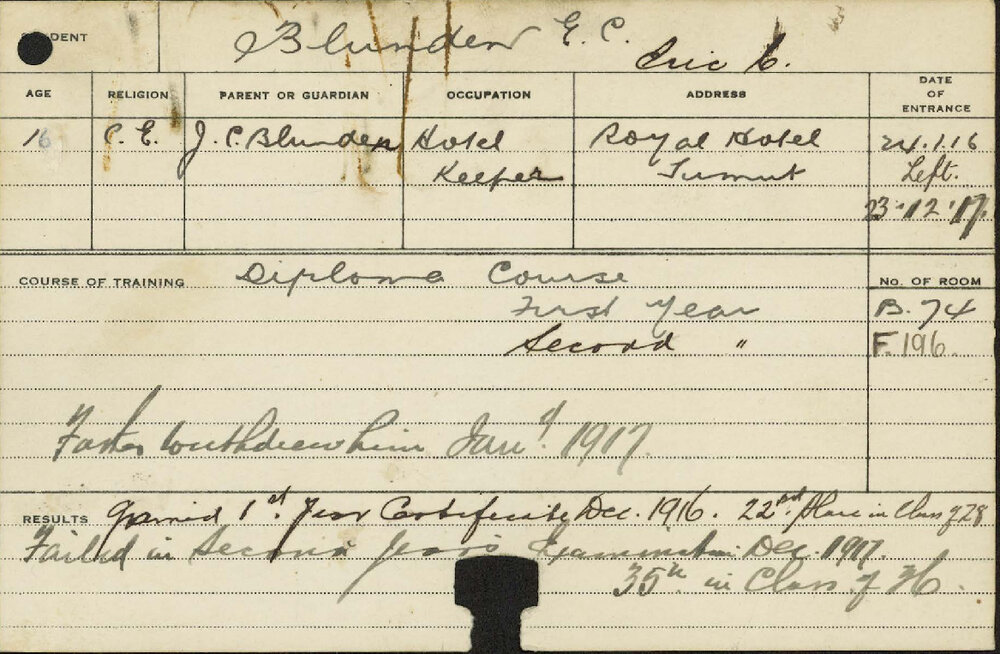 STUDENT Blunden E. C.
Eric C.
AGE RELIGION PARENT OR GUARDIAN OCCUPATION ADDRESS DATE OF ENTRANCE
16 C. E. J. C. Blunden Hotel Royal Hotel 24.1.16
Keeper Tumut Left.
23.12.17.
COURSE OF TRAINING Diploma Course No. OF ROOM
First Year B. 74
Second " F. 196.
Father withdrew him Jany. 1917.
RESULTS Gained 1st Year Certificate Dec. 1916. 22nd Place in Class of 28
Failed in Second Year's Examination Dec. 1917.
35th in Class of